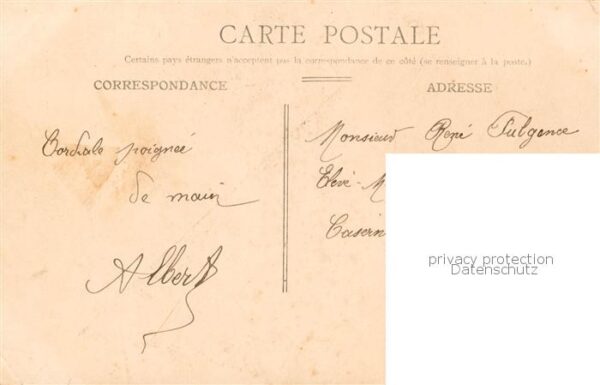 CARTE POSTALE
Certains pays étrangers n'acceptent pas la correspondance de ce côté (se renseigner à la poste.)
CORRESPONDANCE
ADRESSE
Cordiale poignée
de main
Albert
Monsieur René Fulgence
Elève - M
Casern
privacy protection
Datenschutz